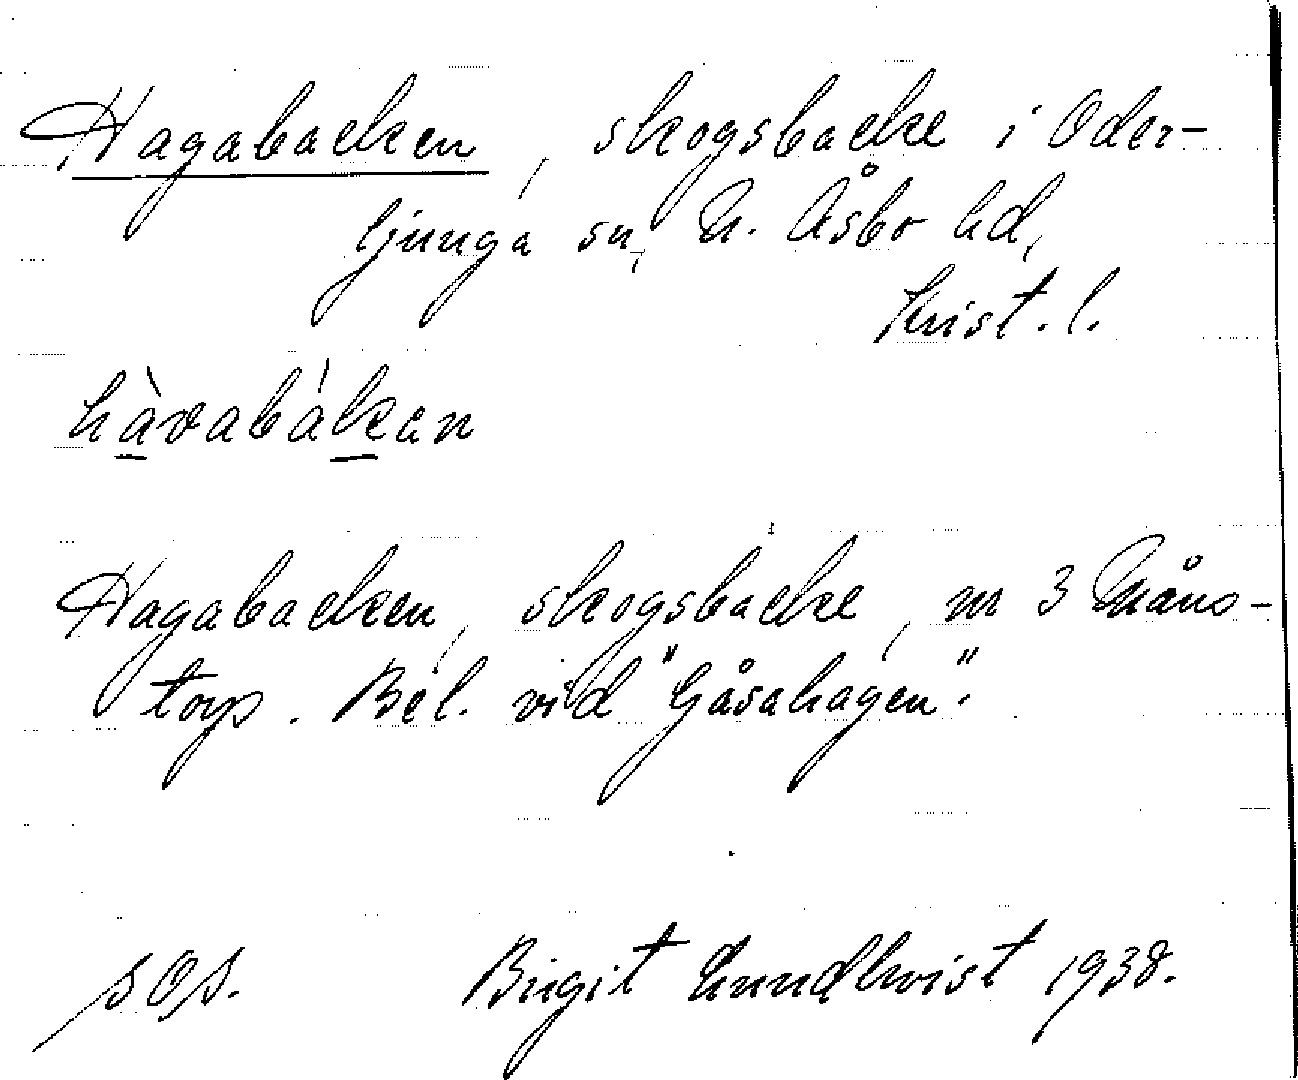 Hagabacken, skogsbacke i Oder-
ljunga sn, N. Åsbo hd,
Krist. l.
hàvabákan
Hagabacken, skogsbacke, nr 3 Måns-
torp. Bel. vid "Gåsahagen".
SOS. Birgit Lundkvist 1938.